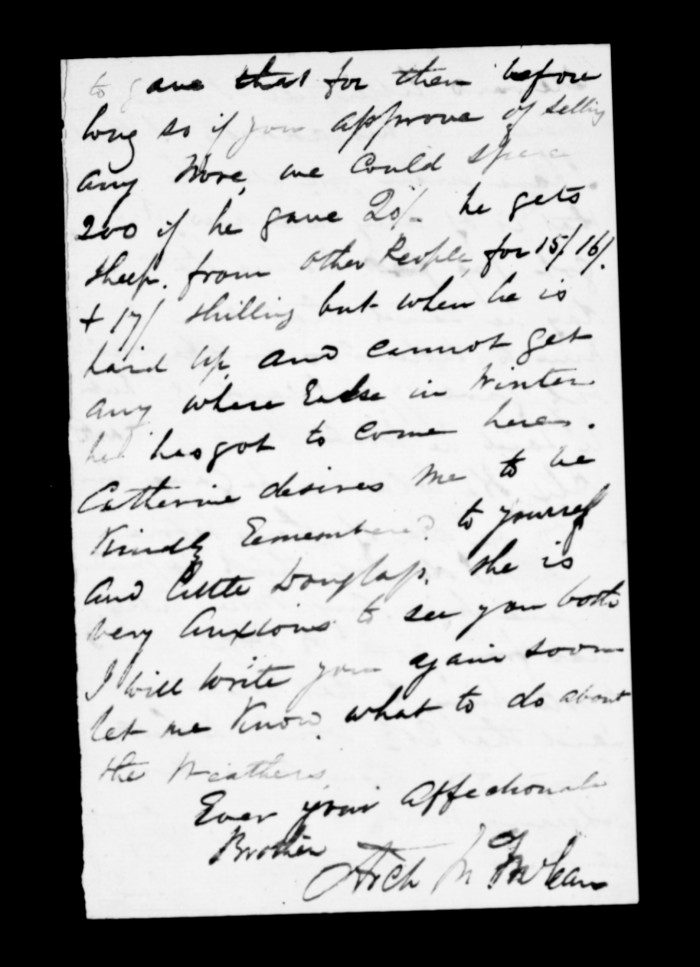 to gave that for them before
long so if you approve of selling
any more, we could spare
200 if he gave 20/- he gets
sheep. from other People, for 15/ 16/.
+ 17/ shilling but when he is
haird up and cannot get
any where Endse in Winter
he hasgot to come here.
Catherine desires me to be
Kindly Remembered to yourself
and little Douglass. She is
very anxious to see you both
I will write you again soon
let me Know what to do about
the Weathers
Ever your affectionate
Brother
Arch McLean